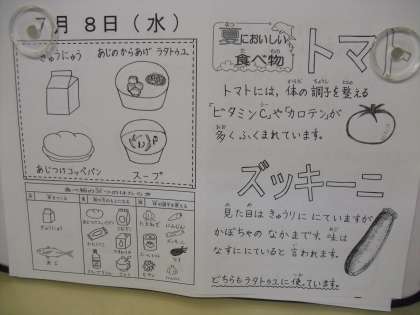 7月8日（水）
ぎゅうにゅう
あじのからあげ
ラタトゥユ
あじつけコッペパン
スープ
食べ物の3つのはたらき
夏においしい
食べ物
トマト
トマトには、体の調子を整える
「ビタミンC」や「カロテン」が
多くふくまれています。
ズッキーニ
見た目はきゅうりににていますが
かぼちゃのなかまです。味は
なすににていると言われます。
どちらもラタトゥユに使っています。